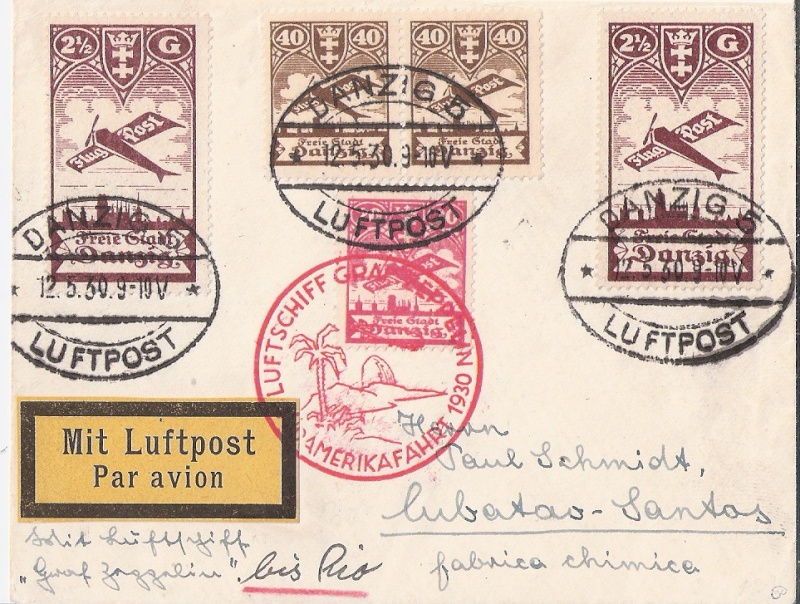 2½ G
Flug Post
Freie Stadt
Danzig
40 40
Freie Stadt
Danzig
40 40
Freie Stadt
Danzig
2½ G
Flug Post
Freie Stadt
Danzig
DANZIG 5
* 12.5.30.9-10V *
LUFTPOST
DANZIG 5
* 12.5.30.9-10V *
LUFTPOST
DANZIG 5
* 12.5.30.9-10V *
LUFTPOST
Freie Stadt
Danzig
LUFTSCHIFF GRAF ZEPPELIN
SÜDAMERIKAFAHRT 1930
Mit Luftpost
Par avion
Herrn
Paul Schmidt,
Cubatao-Santos
fabrica chimica
Mit Luftschiff
"Graf Zeppelin" bis Rio